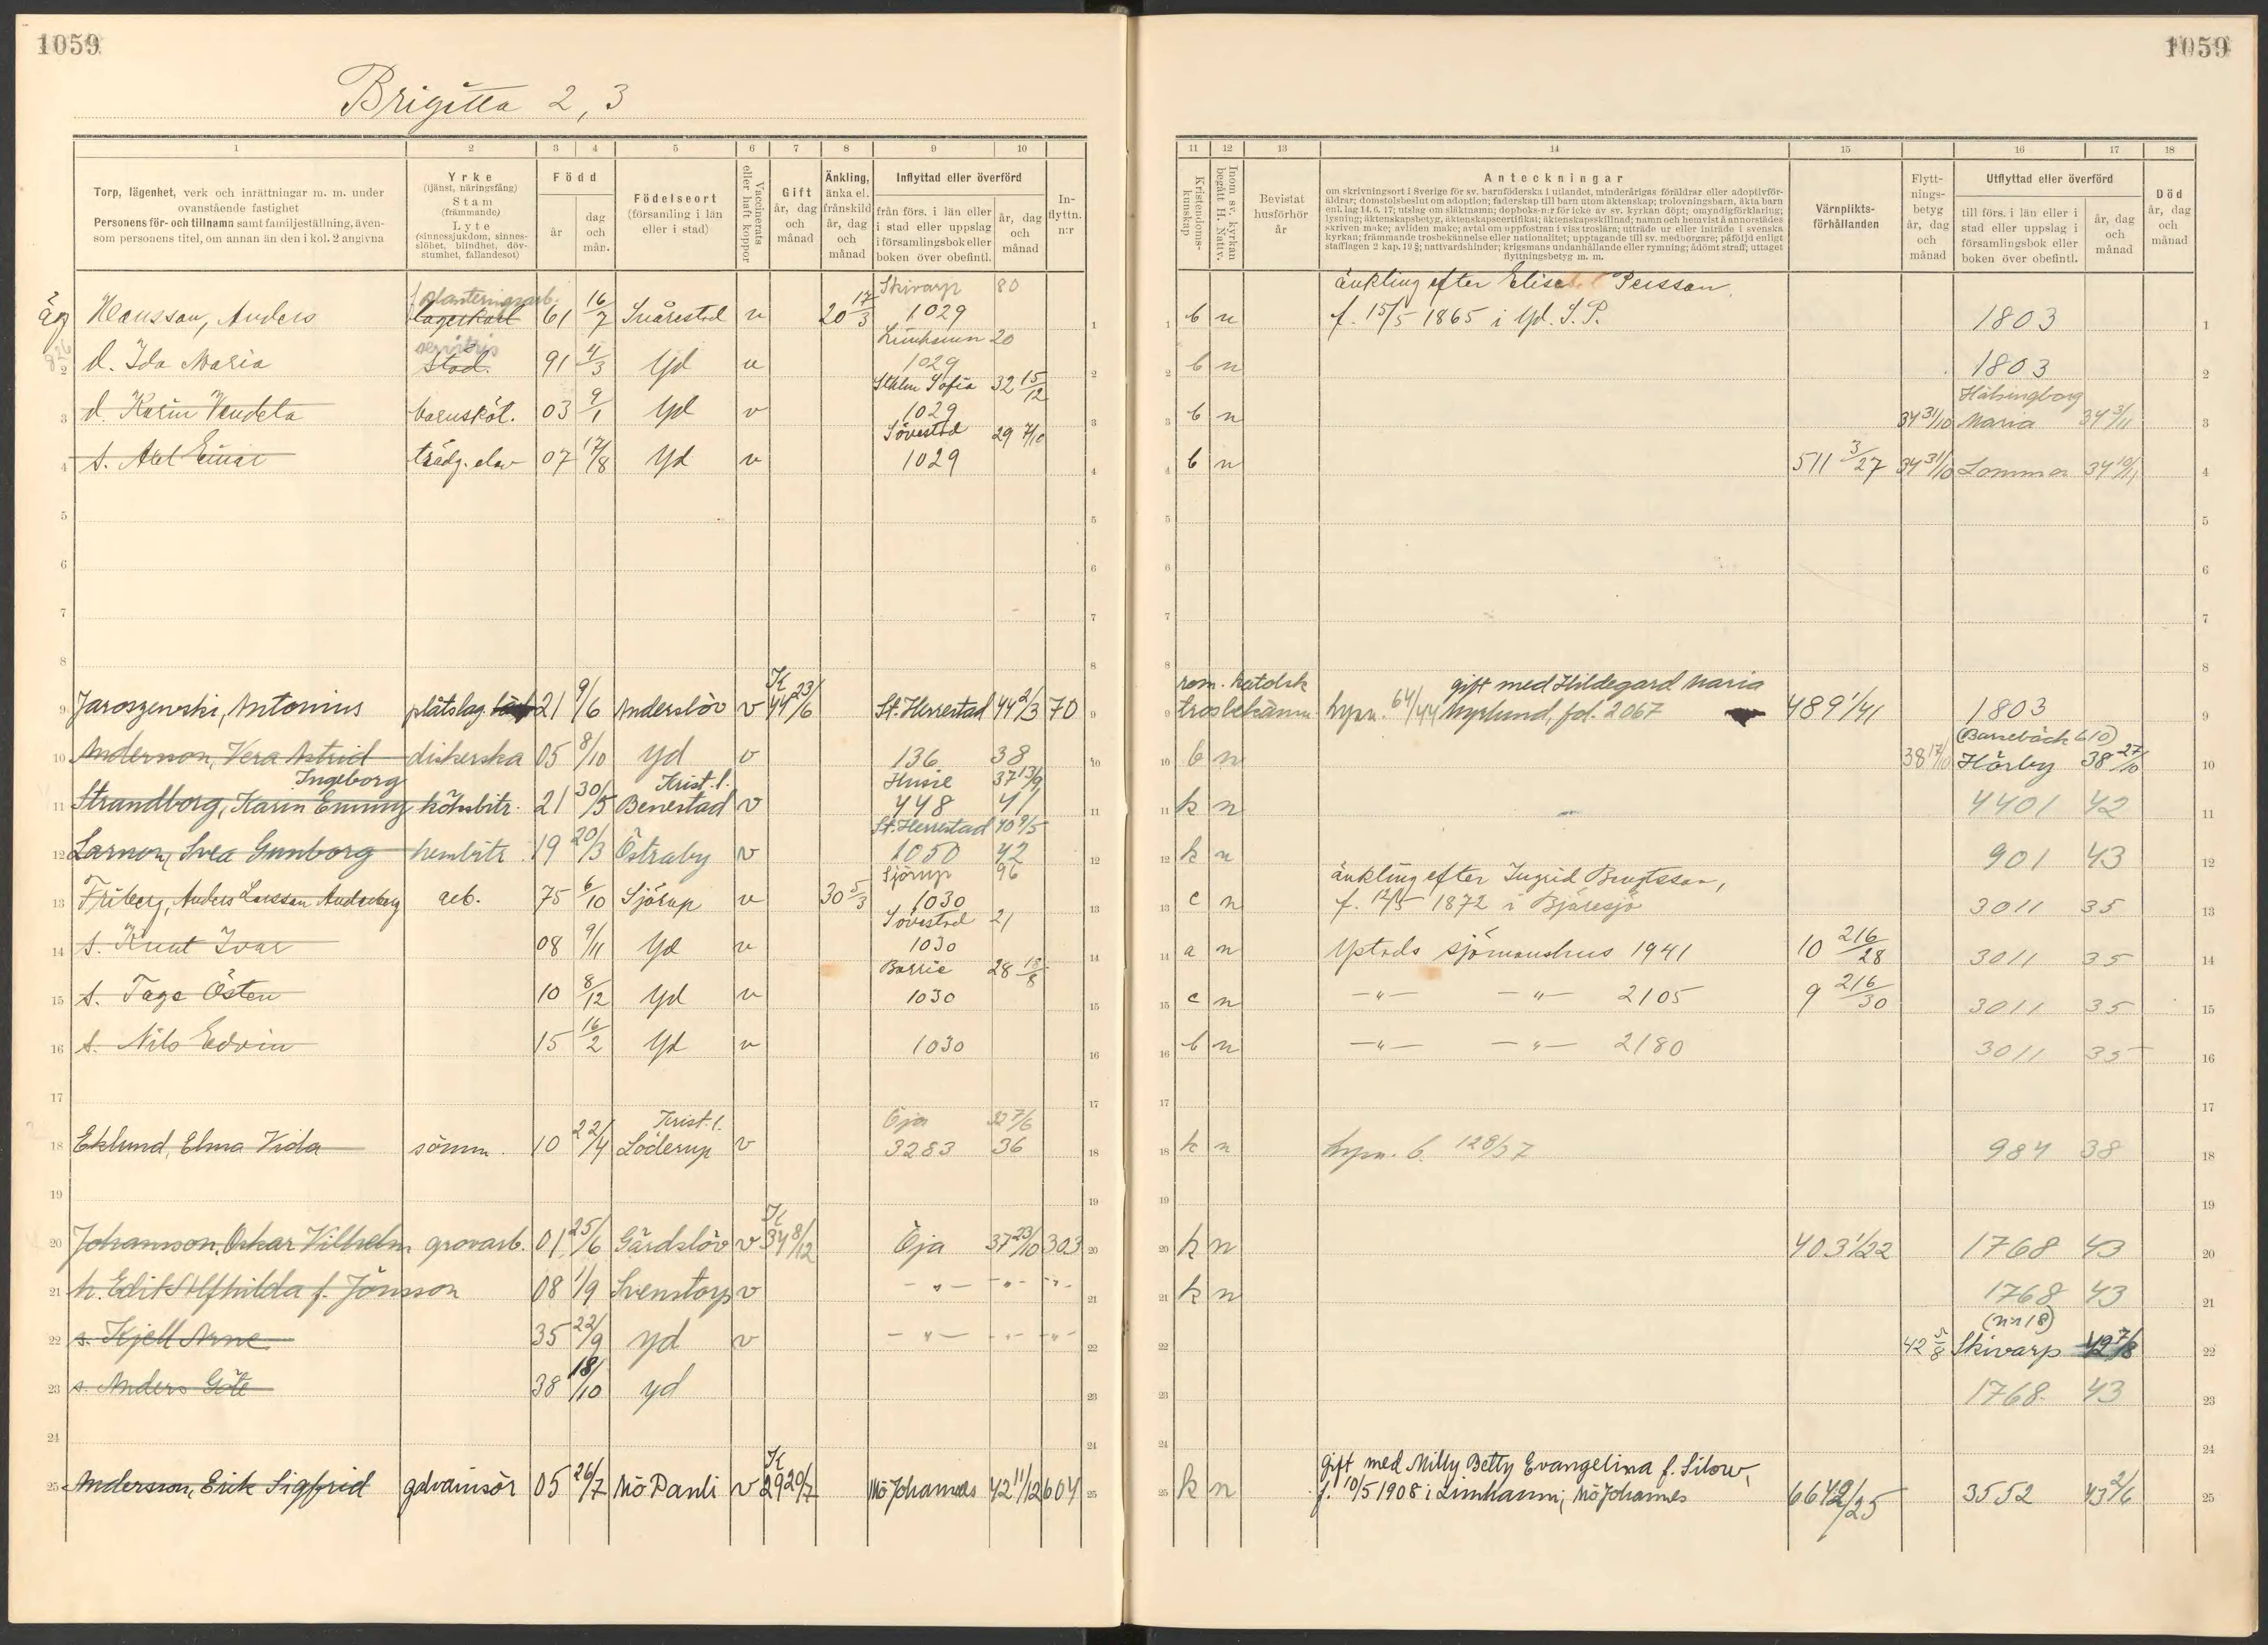 1059
1059
Brigitta 2, 3
1 2 3 4 5 6 7 8 9 10
Torp, lägenhet, verk och inrättningar m. m. under
ovanstående fastighet
Personens för- och tillnamn samt familjeställning, även-
som personens titel, om annan än den i kol. 2 angivna
Yrke
(tjänst, näringsfång)
Stam
(främmande)
Lyte
(sinnessjukdom, sinnes-
slöhet, blindhet, döv-
stumhet, fallandesot)
Född
år
dag
och
mån.
Födelseort
(församling i län
eller i stad)
Vaccinerats
eller haft koppor
Gift
år, dag
och
månad
Änkling,
änka el.
frånskild
år, dag
och
månad
Inflyttad eller överförd
från förs. i län eller
i stad eller uppslag
i församlingsbok eller
boken över obefintl.
år, dag
och
månad
In-
flyttn.
n:r
11 12 13 14 15 16 17 18
Kristendoms-
kunskap
Inom sv. kyrkan
begått H. Nattv.
Bevistat
husförhör
år
Anteckningar
om skrivningsort i Sverige för sv. barnföderska i utlandet, minderårigas föräldrar eller adoptivför-
äldrar; domstolsbeslut om adoption; faderskap till barn utom äktenskap; trolovningsbarn, äkta barn
enl. lag 14. 6. 17; utslag om släktnamn; dopboks-n:r för icke av sv. kyrkan döpt; omyndigförklaring;
lysning; äktenskapsbetyg, äktenskapscertifikat; äktenskapsskillnad; namn och hemvist å annorstädes
skriven make; avliden make; avtal om uppfostran i viss troslära; utträde ur eller inträde i svenska
kyrkan; främmande trosbekännelse eller nationalitet; upptagande till sv. medborgare; påföljd enligt
strafflagen 2 kap. 19 §; nattvardshinder; krigsmans undanhållande eller rymning; ådömt straff; uttaget
flyttningsbetyg m. m.
Värnplikts-
förhållanden
Flytt-
nings-
betyg
år, dag
och
månad
Utflyttad eller överförd
till förs. i län eller i
stad eller uppslag i
församlingsbok eller
boken över obefintl.
år, dag
och
månad
Död
år, dag
och
månad
planteringsarb. Skivarp 80 änkling efter Elisabet Persson,
1 Hansson, Anders lagerkarl 61 16/7 Snårestad v 20 17/3 1029 b n f. 15/5 1865 i Yd. S. P. 1803
servitris Limhamn 20
2 d. Ida Maria städ. 91 4/3 Yd v 1029 b n 1803
Sthlm Sofia 32 15/12 Hälsingborg
3 d. Karin Vendela barnsköt. 03 9/1 Yd v 1029 b n 34 31/10 Maria 34 3/11
Sövestad 29 7/10
4 s. Axel Einar trädg. elev 07 17/8 Yd v 1029 b n 511 3/27 34 31/10 Lomma 34 10/11
5
6
7
8
K rom. katolsk gift med Hildegard Maria
9 Jaroszewski, Antonius plåtslag. 21 9/6 Anderslöv v 44 23/6 St. Herrestad 44 2/3 70 trosbekänn. lysn. 64/44 Nyrlund, fol. 2067 489 1/41 1803
(Barsebäck 610)
10 Andersson, Vera Astrid diskerska 05 8/10 yd v 136 38 b n 38 17/10 Hörby 38 27/10
Ingeborg Krist. l. Husie 37 13/9
11 Strandborg, Karin Emmy köksbitr. 21 30/5 Benestad v 448 41 k n 4401 42
St. Herrestad 40 9/5
12 Larsson, Svea Gunborg hembitr. 19 20/3 Östraby v 1050 42 k n 901 43
Sjörup 96 änkling efter Ingrid Bengtsson,
13 Friberg, Anders Larsson Anderberg arb. 75 6/10 Sjörup v 30 5/3 1030 c n f. 12/5 1872 i Bjäresjö 3011 35
Sövestad 21
14 s. Knut Ivar 08 9/11 Yd v 1030 a n Ystads sjömanshus 1941 10 216/28 3011 35
Börrie 28 18/8
15 s. Tage Östen 10 8/12 Yd v 1030 c n —„— —„— 2105 9 216/30 3011 35
16 s. Nils Edvin 15 16/2 Yd v 1030 b n —„— —„— 2180 3011 35
17
Krist. l. Öja 32 7/6
18 Eklund, Elma Viola sömm. 10 22/4 Löderup v 3283 36 k n lysn. b. 128/37 984 38
19
K
20 Johansson, Oskar Vilhelm grovarb. 01 25/6 Gärdslöv v 34 8/12 Öja 37 23/10 303 k n 403 1/22 1768 43
21 h. Edit Alfhilda f. Jönsson 08 1/9 Svenstorp v —„— —„— —„— k n 1768 43
(nr 18)
22 s. Kjell Arne 35 22/9 yd v —„— —„— —„— 42 5/8 Skivarp 42 7/8
23 s. Anders Göte 38 18/10 yd 1768 43
24
K gift med Milly Betty Evangelina f. Silow,
25 Andersson, Erik Sigfrid galvanisör 05 26/7 Mö Pauli v 29 20/7 Mö Johannes 42 11/12 604 k n f. 10/5 1908 i Limhamn; Mö Johannes 664 2/25 3552 43 2/6